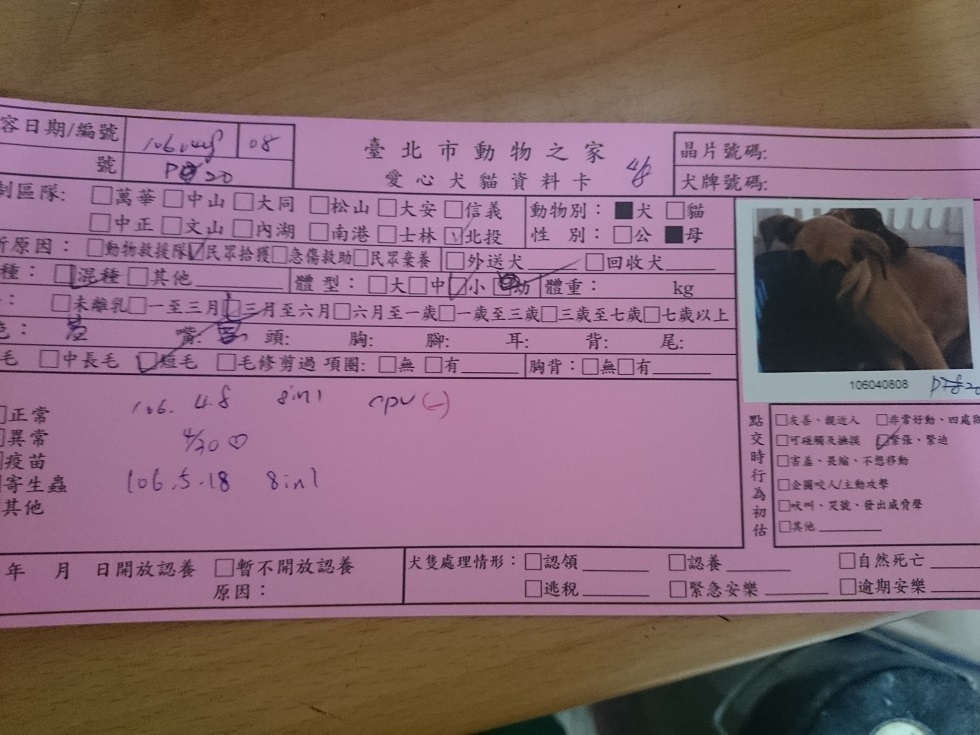 容日期/編號 106.04.08 08
臺北市動物之家
愛心犬貓資料卡 48
晶片號碼:
號 20
犬牌號碼:
制區隊: □萬華 □中山 □大同 □松山 □大安 □信義
□中正 □文山 □內湖 □南港 □士林 ☑北投
動物別: ■犬 □貓
性 別: □公 ■母
所原因: □動物救援隊 ☑民眾拾獲 □急傷救助 □民眾棄養 □外送犬 □回收犬
種: ☑混種 □其他 體 型: □大 □中 ☑小 幼 體重: kg
□未離乳 □一至三月 ☑三月至六月 □六月至一歲 □一歲至三歲 □三歲至七歲 □七歲以上
色: 嘴: 頭: 胸: 腳: 耳: 背: 尾:
毛 □中長毛 ☑短毛 □毛修剪過 項圈: □無 □有 胸背: □無 □有
106040808
□正常
□異常
□疫苗
寄生蟲
其他
106. 4.8 8in1 cpv(-)
4/30 ♡
106.5.18 8in1
點交時行為初估
□友善、親近人 □非常好動、四處
□可碰觸及撫摸 ☑緊張、緊迫
□害羞、畏縮、不想移動
□企圖咬人/主動攻擊
□吠叫、哭號、發出威脅聲
□其他
年 月 日開放認養 □暫不開放認養
原因:
犬隻處理情形: □認領 □認養 □自然死亡
□逃稅 □緊急安樂 □逾期安樂